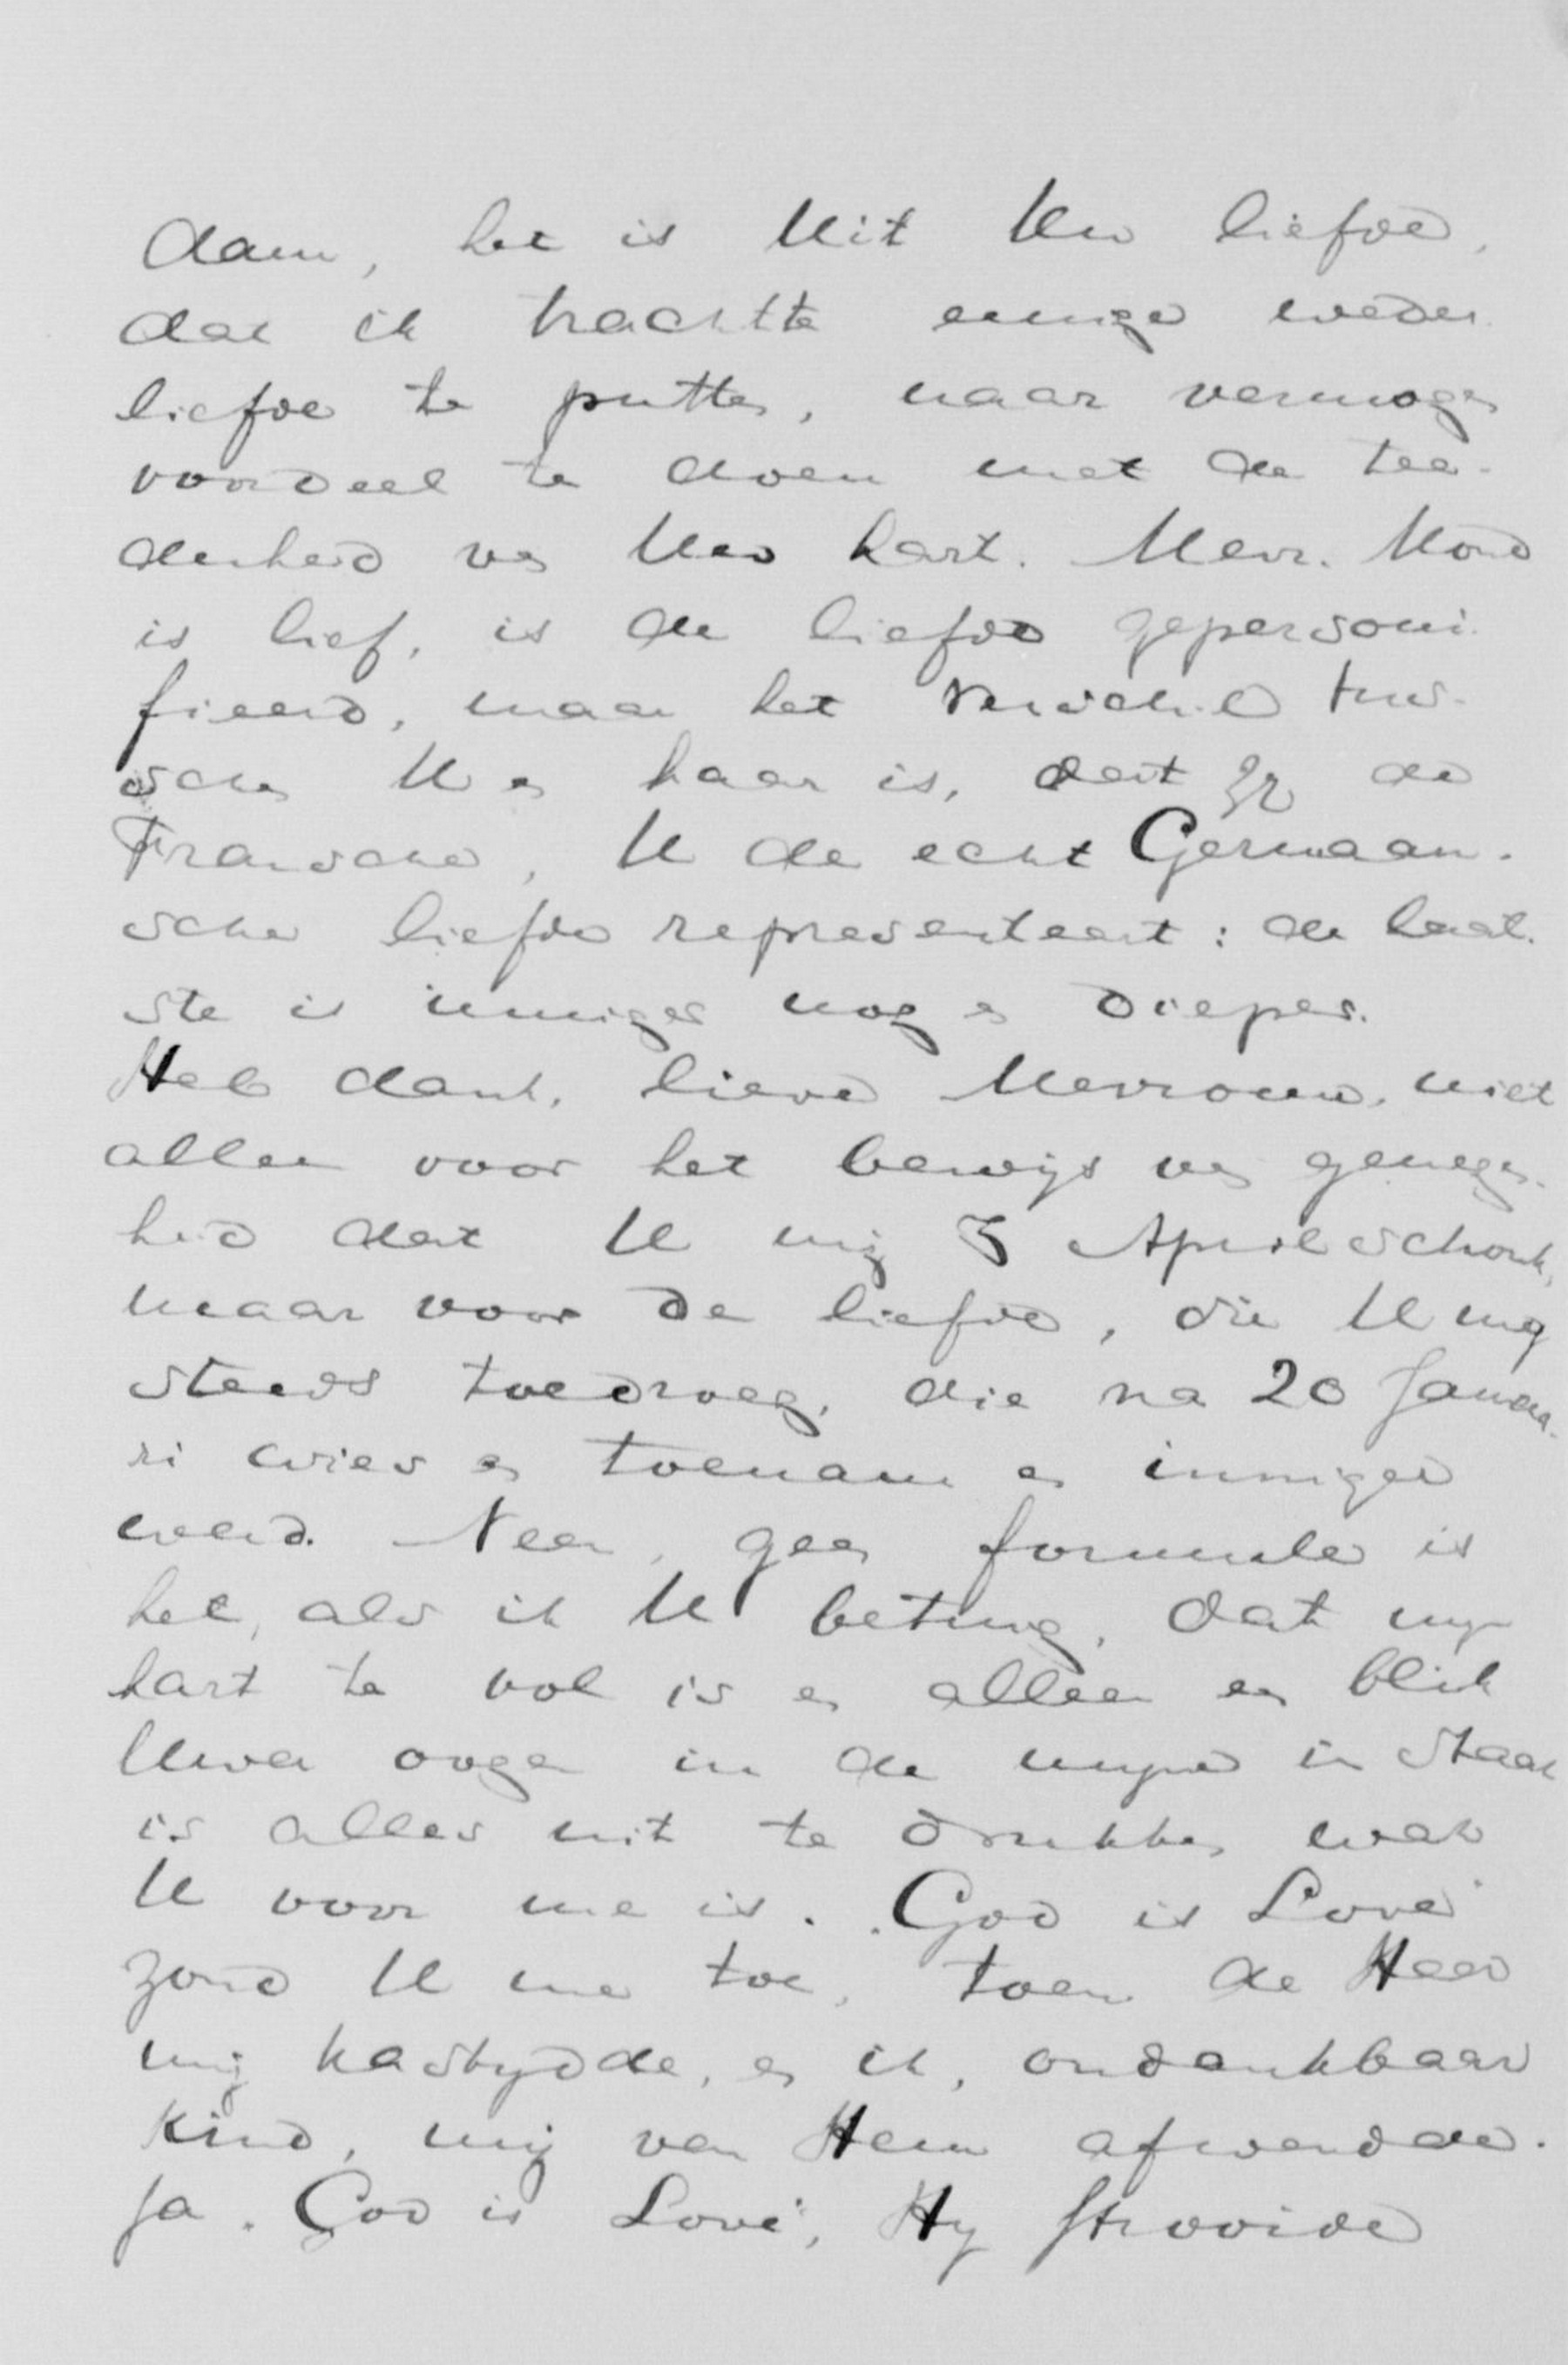 dam, het is Uit Uw liefde,
dat ik trachtte eenige weder
liefde te putten, naar vermogen
voordeel te doen met de tee-
derheid van Uw hart. Mevr. Mond
is lief, is de liefde gepersoni-
fieerd, maar het verschil tus-
schen U en haar is, dat zij de
Fransche, U de echt Germaan-
sche liefde representeert: de laat-
ste is inniger nog en dieper.
Heb dank, lieve Mevrouw, niet
alleen voor het bewijs van genegen-
heid dat U mij 3 April schonk,
maar voor de liefde, die U mij
steeds toedroeg, die na 20 Janua-
ri wies en toenam en inniger
werd. Neen, geen formule is
het, als ik U betuig, dat mijn
hart te vol is en alleen een blik
Uwer oogen in de mijne in staat
is alles uit te drukken wat
U voor me is. "God is Love"
zond U me toe, toen de Heer
mij kastijdde, en ik, ondankbaar
kind, mij van Hem afwendde.
Ja. "God is Love", Hij strooide